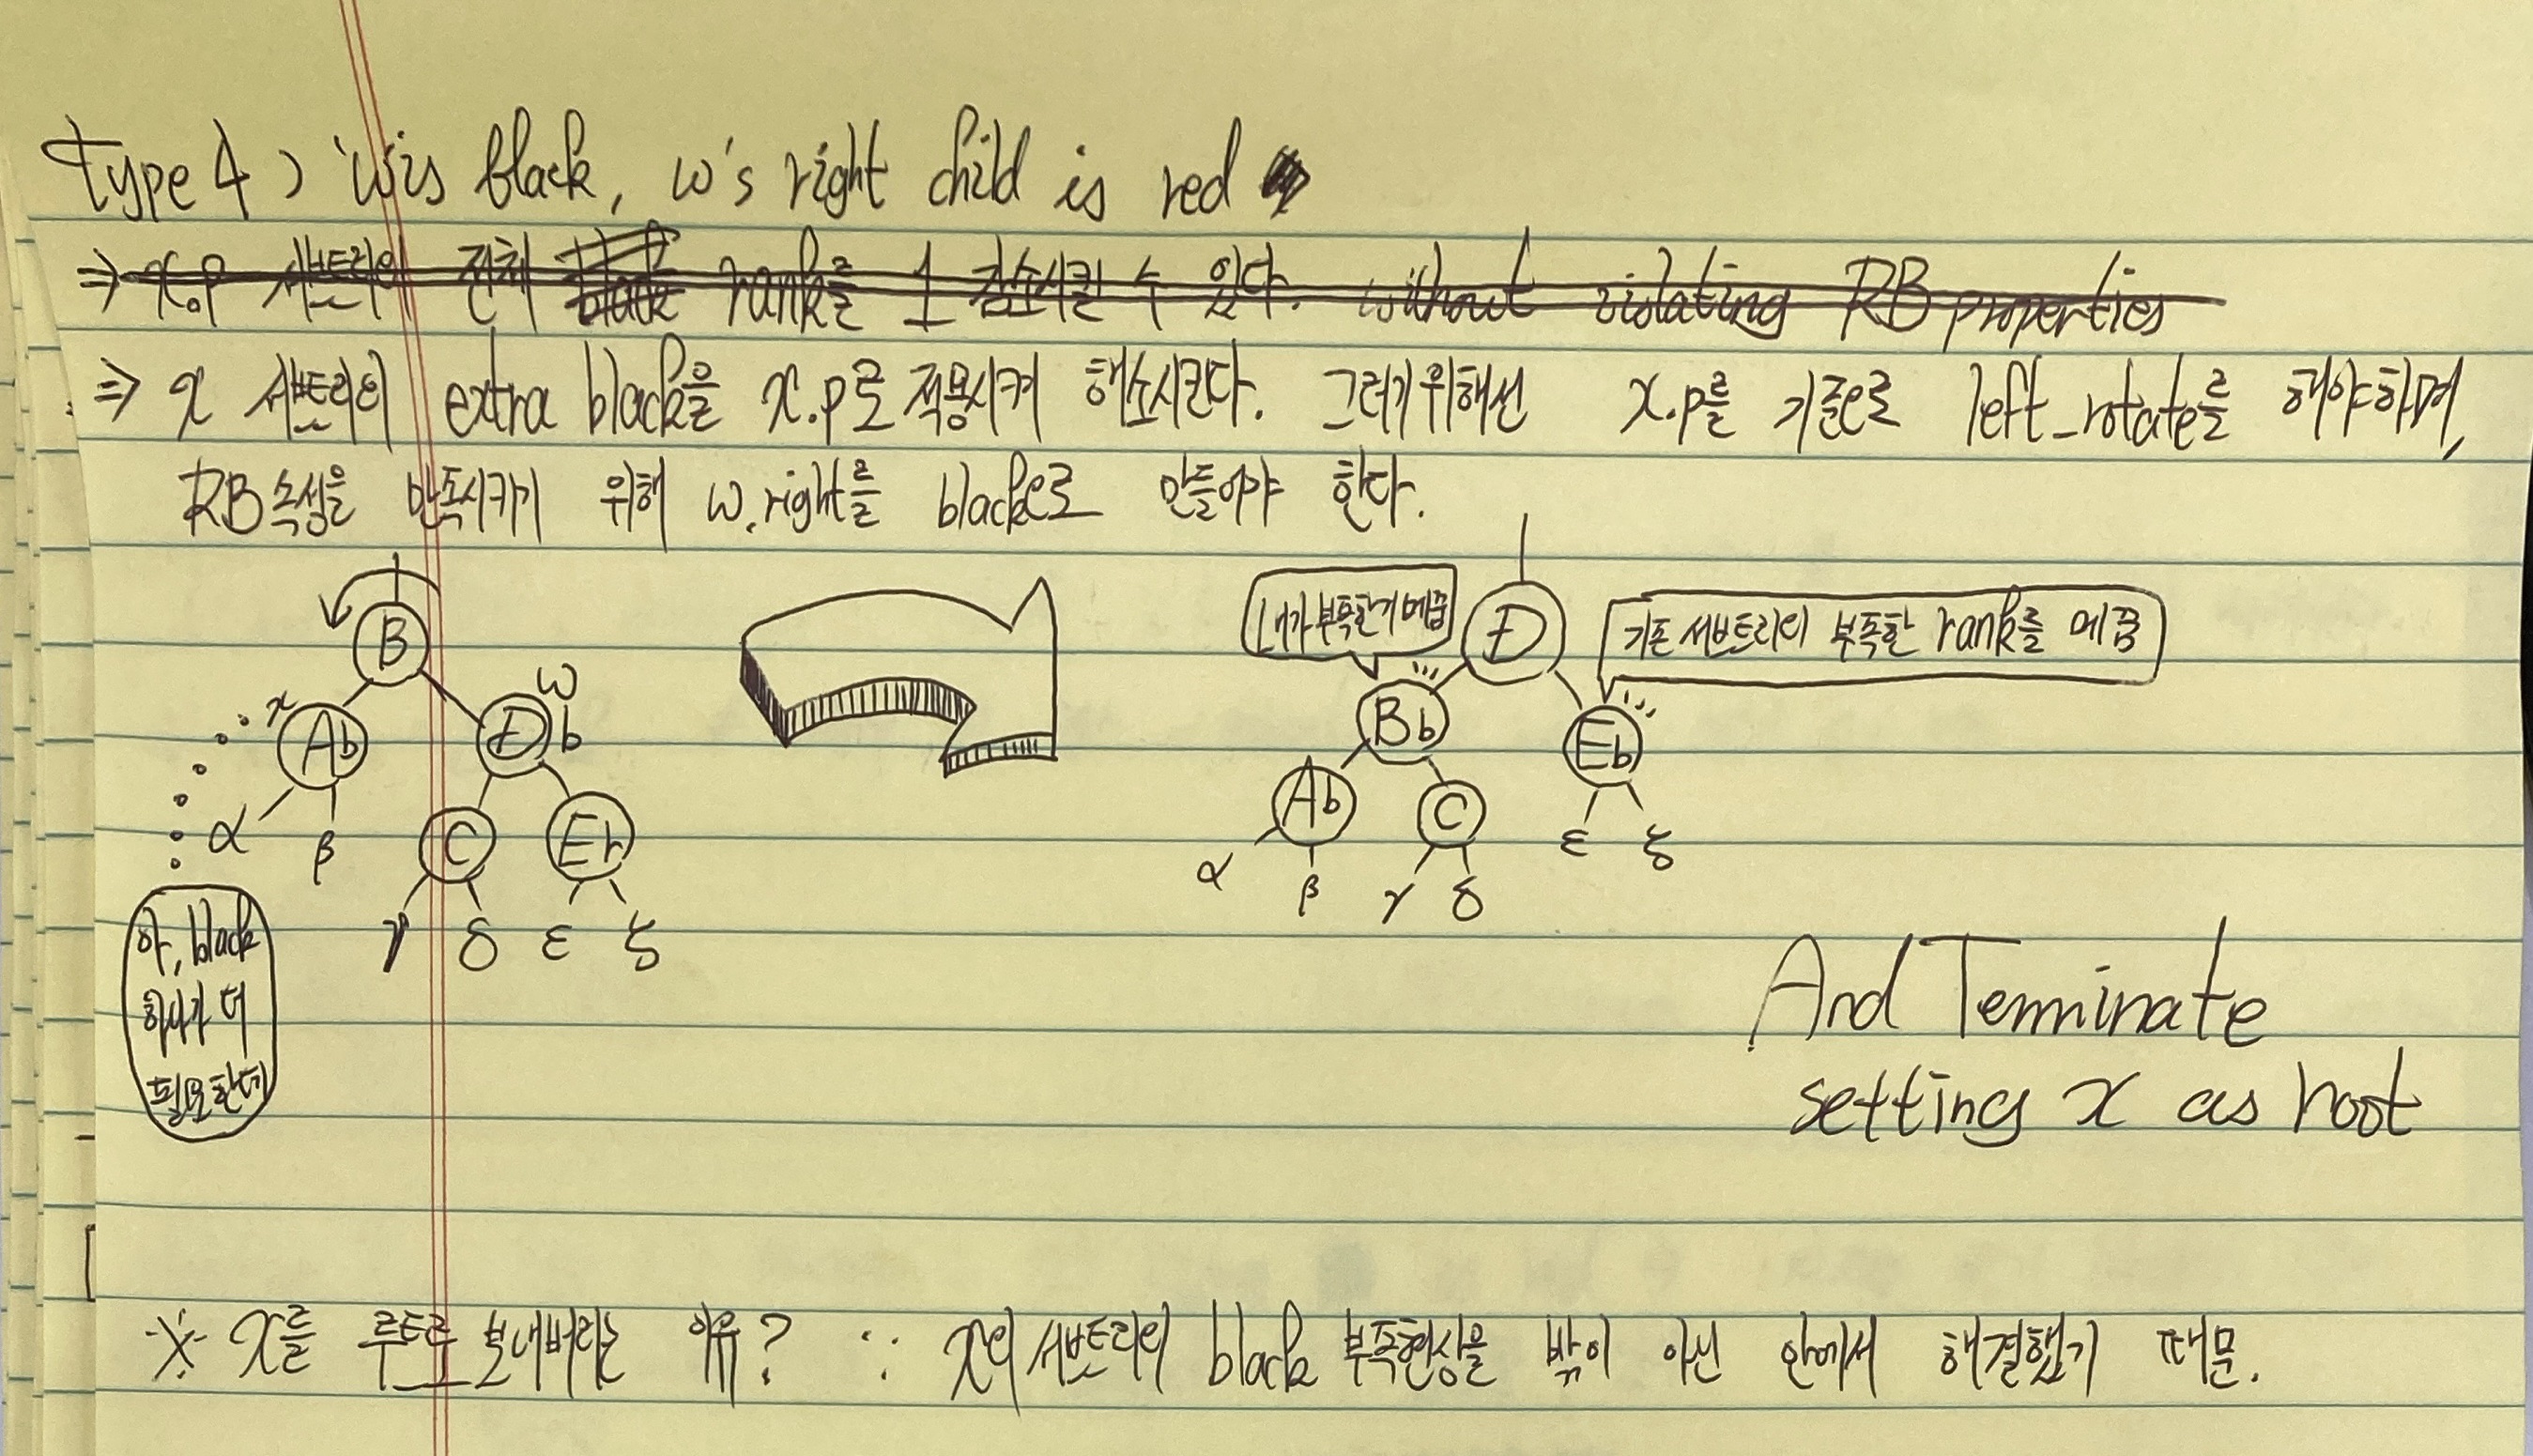 Type 4) w is black, w's right child is red
⇒ x.p 서브트리의 전체 black rank를 1 감소시킬 수 있다. without violating RB properties
⇒ x 서브트리의 extra black을 x.p로 적용시켜 해소시킨다. 그러기위해선 x.p를 기준으로 left_rotate를 해야하며,
RB속성을 만족시키기 위해 w.right를 black으로 만들어야 한다.
B
x
Ab
w
D b
α
β
C
Er
γ
δ
ε
ζ
아, black
하나가 더
필요한데
내가 부족한거 메꿈
D
기존 서브트리의 부족한 rank를 메꿈
Bb
Eb
Ab
C
ε
ζ
α
β
γ
δ
And Terminate
setting x as root
※ x를 루트로 보내버리는 이유? ∵ x의 서브트리의 black 부족현상을 밖이 아닌 안에서 해결했기 때문.